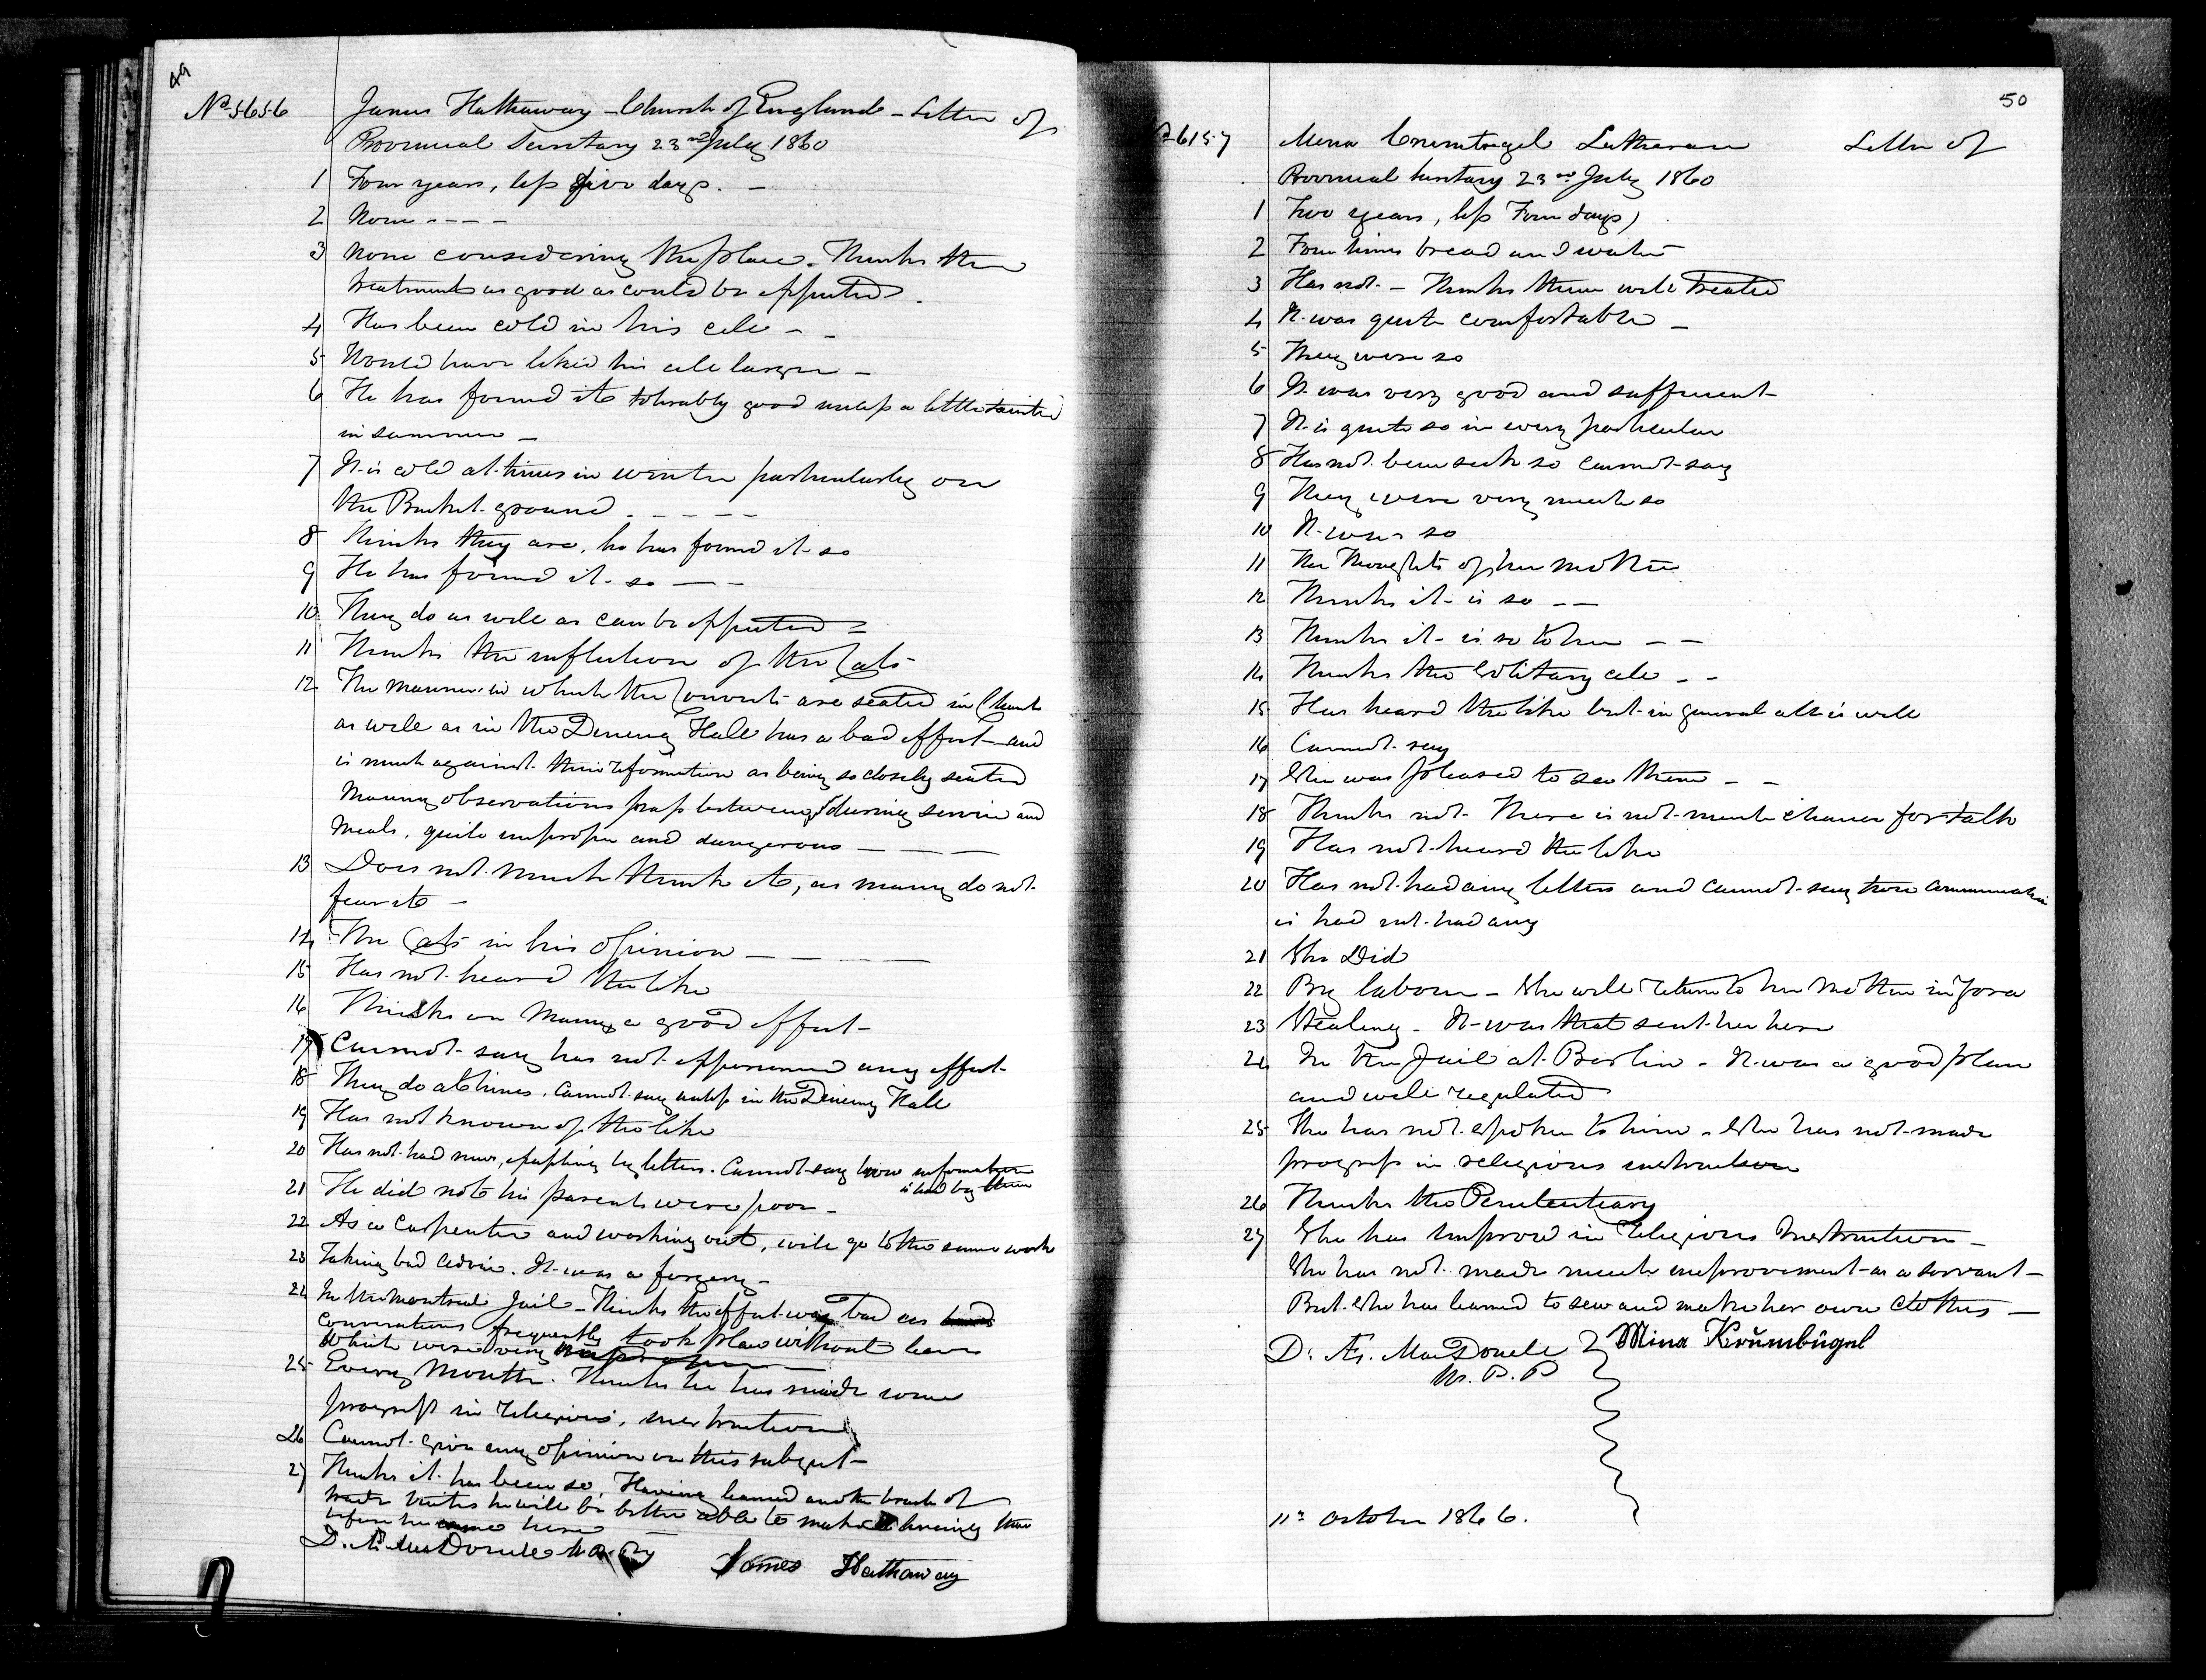 49
No 5656 James Hathaway - Church of England - Letter of
Provincial Secretary 23rd July 1860
1 Four years, less five days. -
2 None - - - -
3 None considering the place. Thinks the
treatment as good as could be expected.
4 Has been cold in his cell - -
5 Would have liked his cell larger -
6 He has found it tolerably good unless a little tainted
in summer -
7 It is cold at times in winter particularly on
the Bucket ground. - - - -
8 Thinks they are, he has found it so
9 He has found it so - - -
10 They do as well as can be expected =
11 Thinks the infliction of the Cats
12 The manner in which the Convicts are seated in Church
as well as in the Dining Hall has a bad effect and
is much against their reformation as being so closely seated
Many observations pass between during service and
Meals, quite improper and dangerous - - -
13 Does not much think it, as many do not
fear it -
14 The Cats in his opinion - - - -
15 Has not heard the like
16 Thinks on Many a good effect -
17 Cannot say has not experienced any effect -
18 They do at times. Cannot say unless in the Dining Hall
19 Has not known of the like
20 Has not had news, excepting by letters. Cannot say how information
is had by them
21 He did not his parents were poor -
22 As a Carpenter and working out, will go to the same work
23 Taking bad advice. It was a forgery -
24 In the Montreal Jail - Thinks the effect was bad as
Conversations frequently took place without leave
which were very improper
25 Every Month. Thinks he has made some
progress in religious, instruction
26 Cannot give any opinion on this subject -
27 Thinks it has been so, Having learned another branch of
trade besides he will be better able to make a living than
before he came here
D. Æ. MacDonell
James Hathaway
50
6157 Mena Crumtregel Lutheran Letter of
Provincial Secretary 23rd July 1860
1 Two years, less Four days)
2 Four times bread and water
3 Has not - Thinks them well treated
4 It was quite comfortable -
5 They were so
6 It was very good and sufficient -
7 It is quite so in every particular
8 Has not been sick so cannot say
9 They were very much so
10 It was so
11 The Thoughts of her mother
12 Thinks it is so - -
13 Thinks it is so to her - -
14 Thinks the Solitary cell - -
15 Has heard the like but in general all is well
16 Cannot say
17 She was pleased to see them - -
18 Thinks not. There is not much chance for talk
19 Has not heard the like
20 Has not had any letters and cannot say how communication
is had not had any
21 She Did
22 By labour - She will return to her Mother in
23 Stealing - It was that sent her here
24 In the Jail at Berlin - It was a good place
and well regulated
25 She has not spoken to him - She has not made
progress in religious instruction
26 Thinks the Penitentiary
27 She has improved in religious Instruction -
She has not made much improvement as a servant -
But she has learned to sew and make her own Clothes -
D. Æ. MacDonell Mina Krŭmbŭgel
W. P. P
11th October 1866.